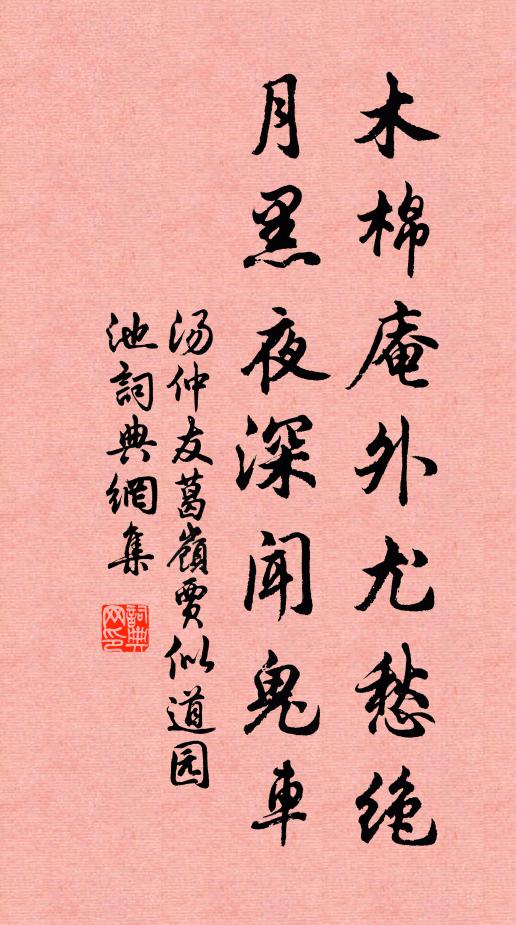 木棉庵外尤愁绝
月黑夜深闻鬼車
汤仲友葛嶺賈似道园
池詞典網集
詞典
网印